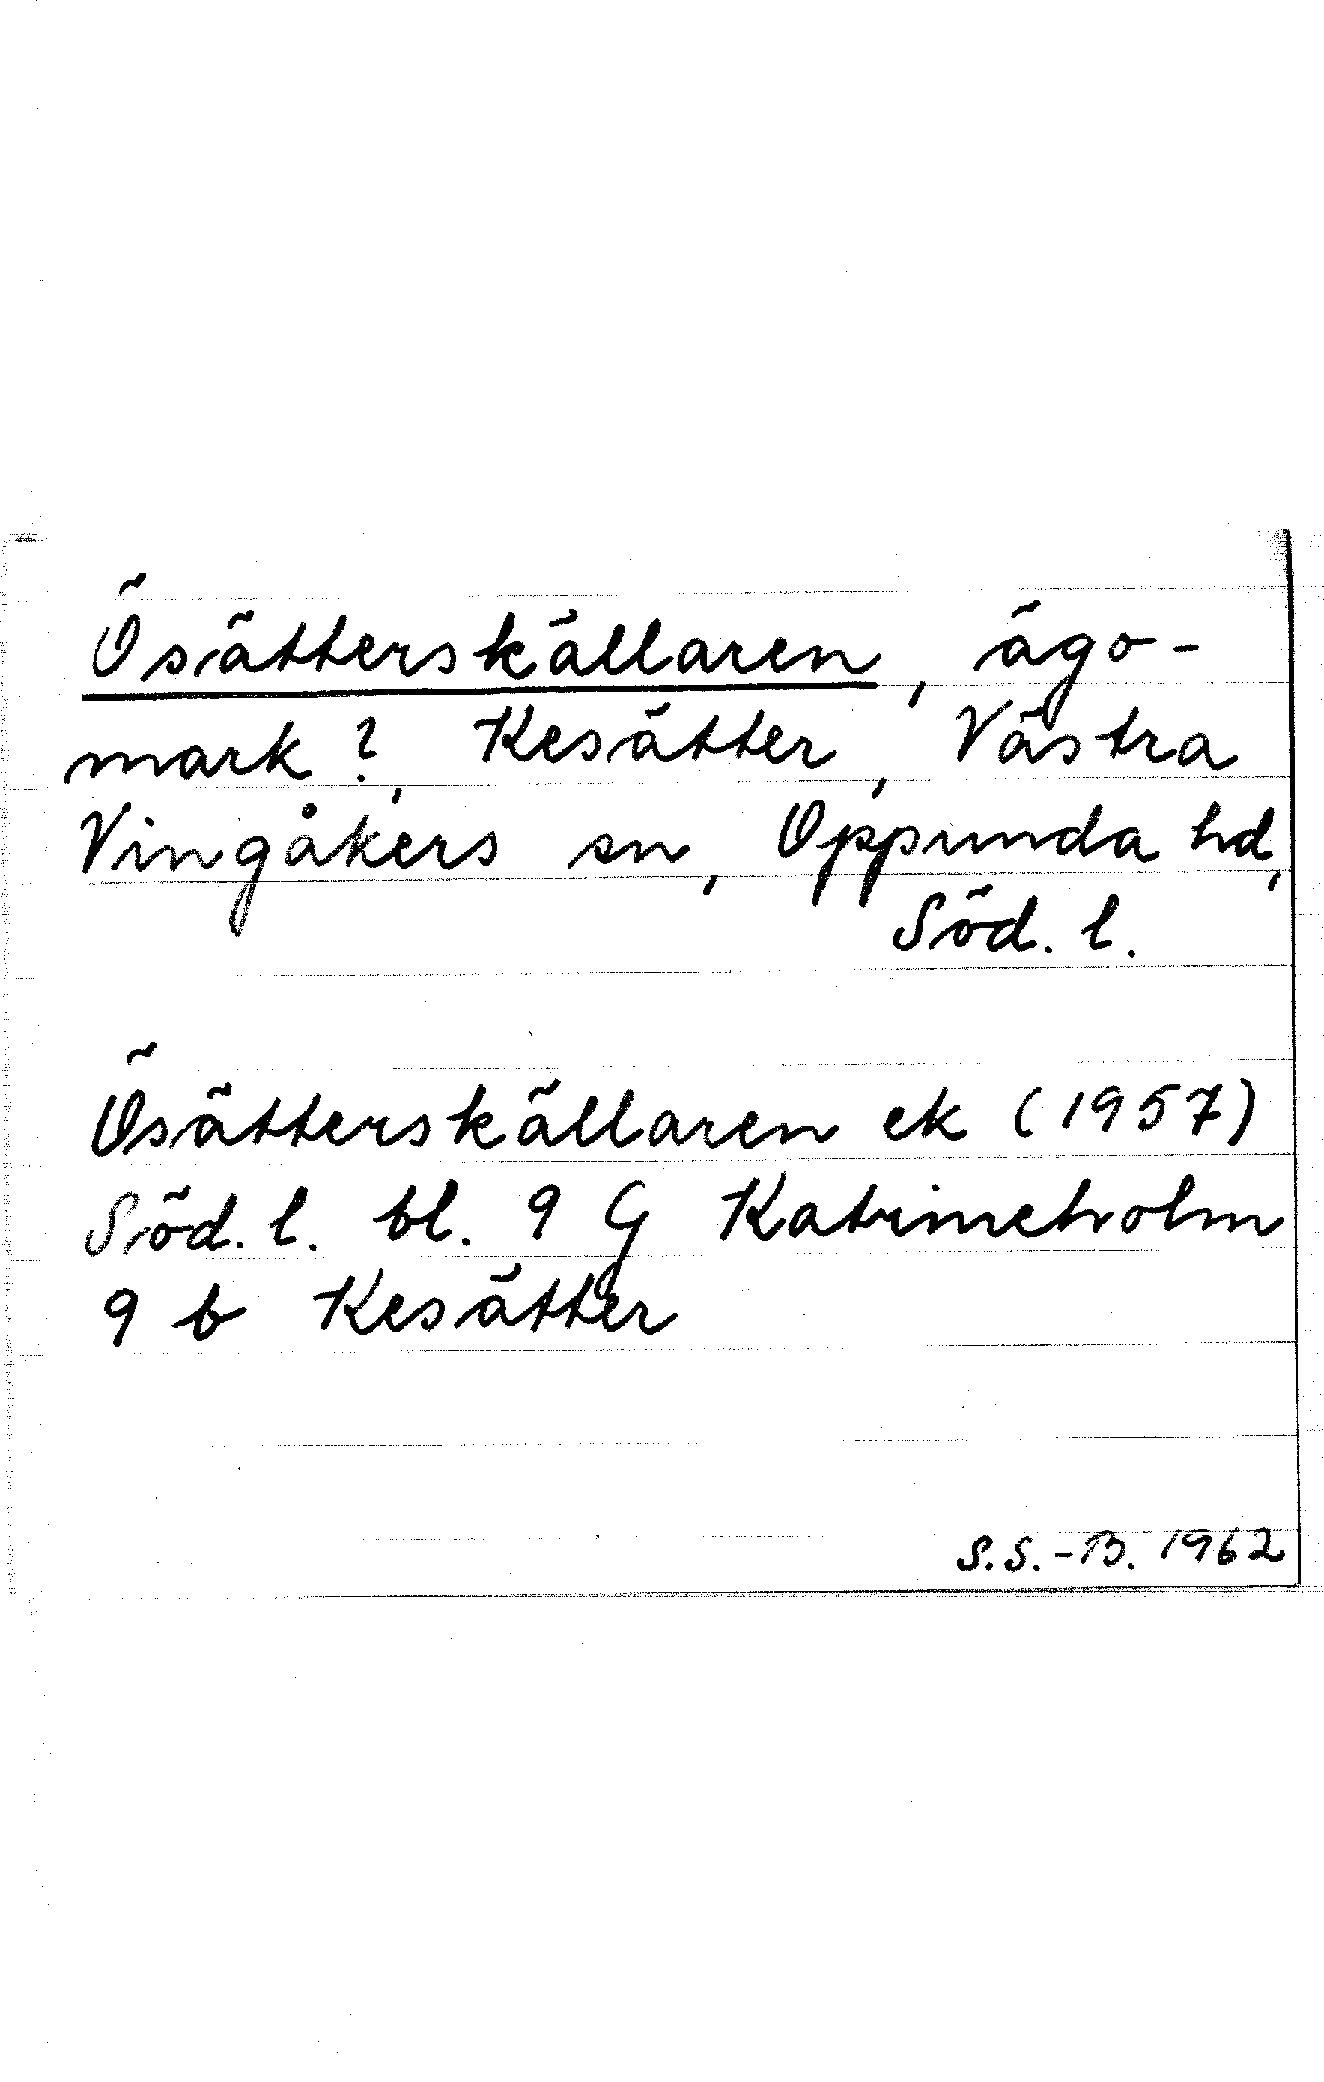 Ösätterskällaren, ägo-
mark?, Kesätter, Västra
Vingåkers sn, Oppunda hd,
Söd. l.
Ösätterskällaren ek (1957)
Söd. l. bl. 9 G Katrineholm
9 b Kesätter
S.S.-B. 1962